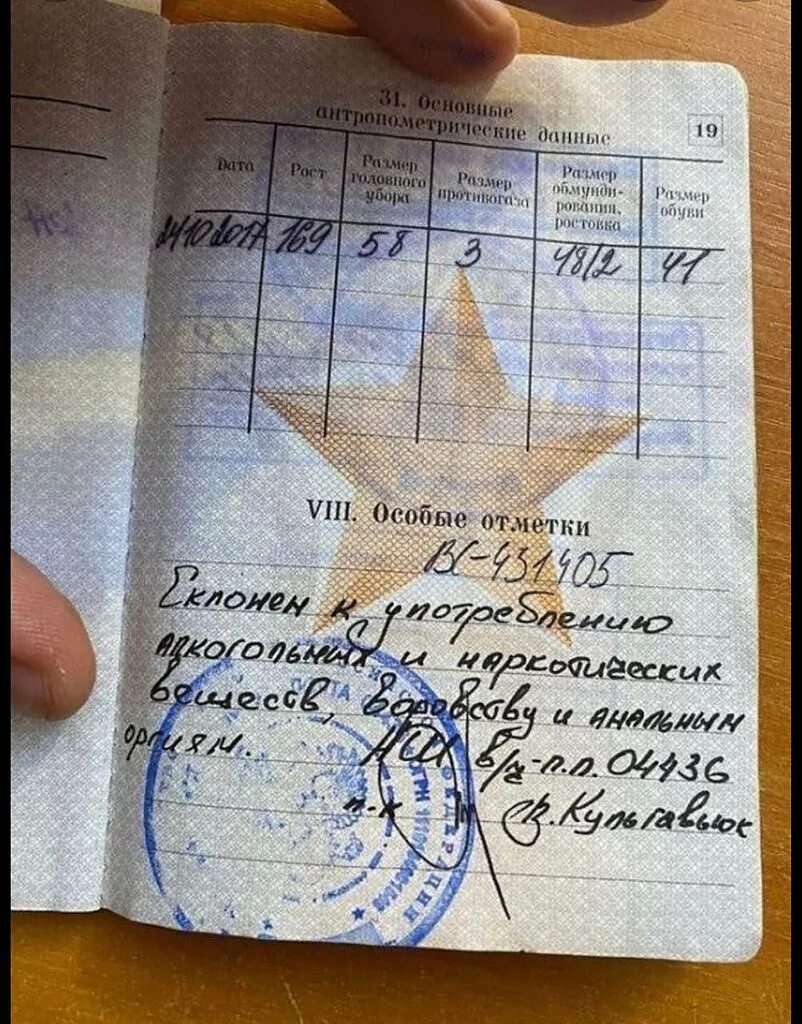 31. Основные
антропометрические данные
19
Дата
Рост
Размер
головного
убора
Размер
противогаза
Размер
обмунди-
рования,
ростовка
Размер
обуви
24102017 169 58 3 48/2 41
VIII. Особые отметки
ВС-431405
Склонен к употреблению
алкогольных и наркотических
веществ, воровству и анальным
оргиям. НШ в/ч-п.п. 04436
п-к Ф. Культавыюк
ФЕДЕРАЦИИ